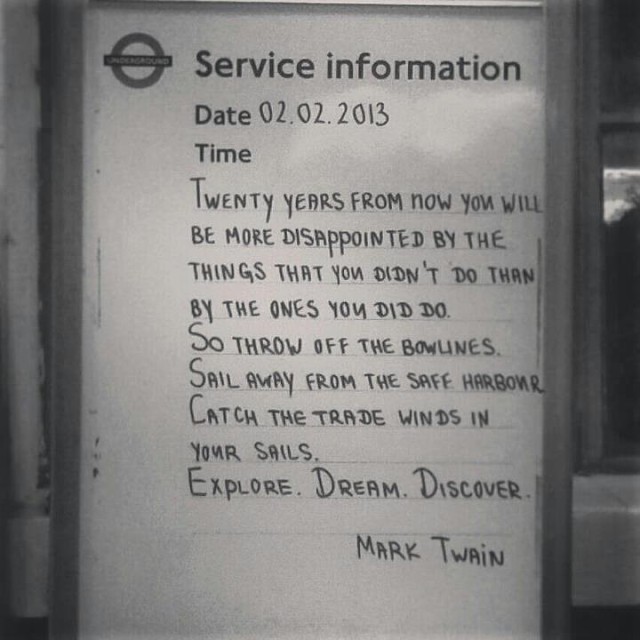 UNDERGROUND
Service information
Date 02.02.2013
Time
TWENTY YEARS FROM NOW YOU WILL
BE MORE DISAPPOINTED BY THE
THINGS THAT YOU DIDN'T DO THAN
BY THE ONES YOU DID DO.
SO THROW OFF THE BOWLINES.
SAIL AWAY FROM THE SAFE HARBOUR
CATCH THE TRADE WINDS IN
YOUR SAILS.
EXPLORE. DREAM. DISCOVER.
MARK TWAIN